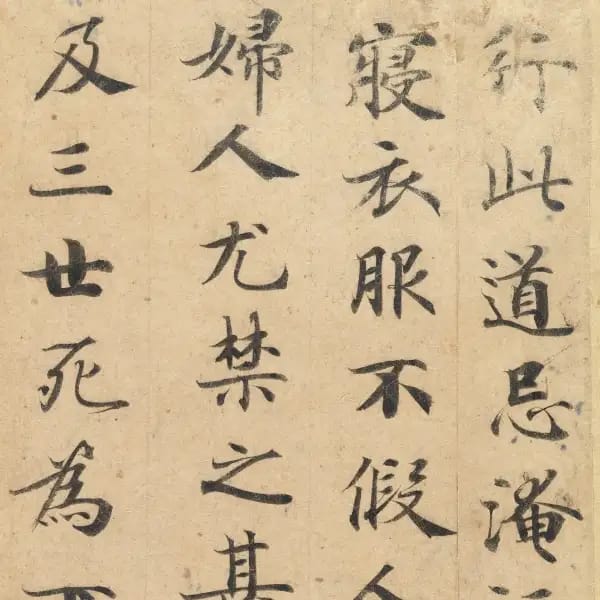 行此道忌淹
寢衣服不假人
婦人尤禁之甚
及三世死為下